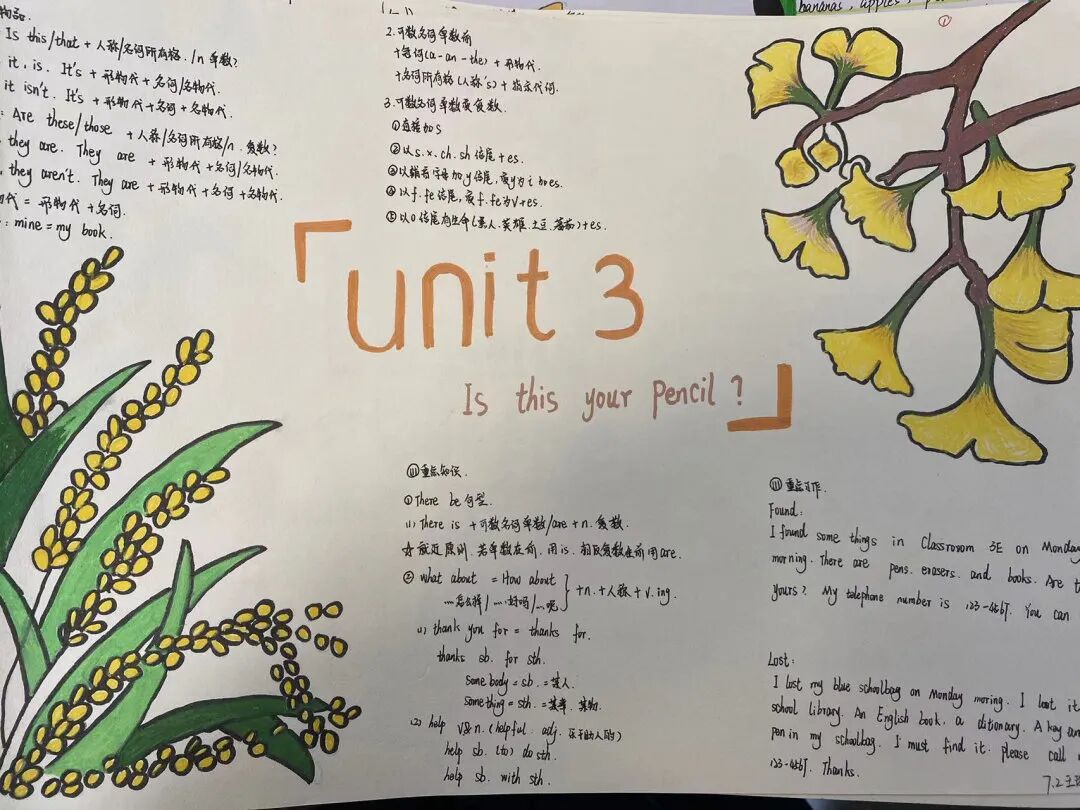 Is this/that + 人称/名词所有格./n 单数?
it, is. It's + 形物代 + 名词/名物代.
it isn't. It's + 形物代 + 名词 + 名物代.
: Are these/those + 人称/名词所有格/n. 复数?
they are. They are + 形物代 + 名词/名物代.
they aren't. They are + 形物代 + 名词 + 名物代.
物代 = 形物代 + 名词.
: mine = my book.
2.可数名词单数前
+冠词(a-an-the) + 形物代.
+名词所有格(人称's) + 指示代词.
3.可数名词单数变复数.
①直接加s
②以s.x.ch.sh结尾+es.
③以辅音字母加y结尾,变y为i加es.
④以f.fe结尾,变f.fe为v+es.
⑤以o结尾有生命(黑人.英雄.土豆.番茄)+es.
bananas, apples,
①
「unit 3
Is this your pencil?」
重点知识.
①There be句型.
(1) There is +可数名词单数/are + n.复数.
☆就近原则.若单数在前.用is.相反复数在前用are.
② what about = How about } +n.+人称+v.ing.
...怎么样/...好吗/...呢
(1) thank you for = thanks for.
thanks sb. for sth.
somebody = sb. = 某人.
something = sth. = 某事.某物.
(2) help v&n.(helpful. adj.乐于助人的)
help sb. (to) do sth.
help sb. with sth.
重点习作.
Found:
I found some things in Classrosom 3E on Monday
morning. There are pens. erasers. and books. Are t
yours? My telephone number is 123-4567. You can
Lost:
I lost my blue schoolbag on Monday moring. I lost it
school library. An English book, a ditionary. A key an
pen in my schoolbag. I must find it. please call
123-4567. Thanks.
7.2